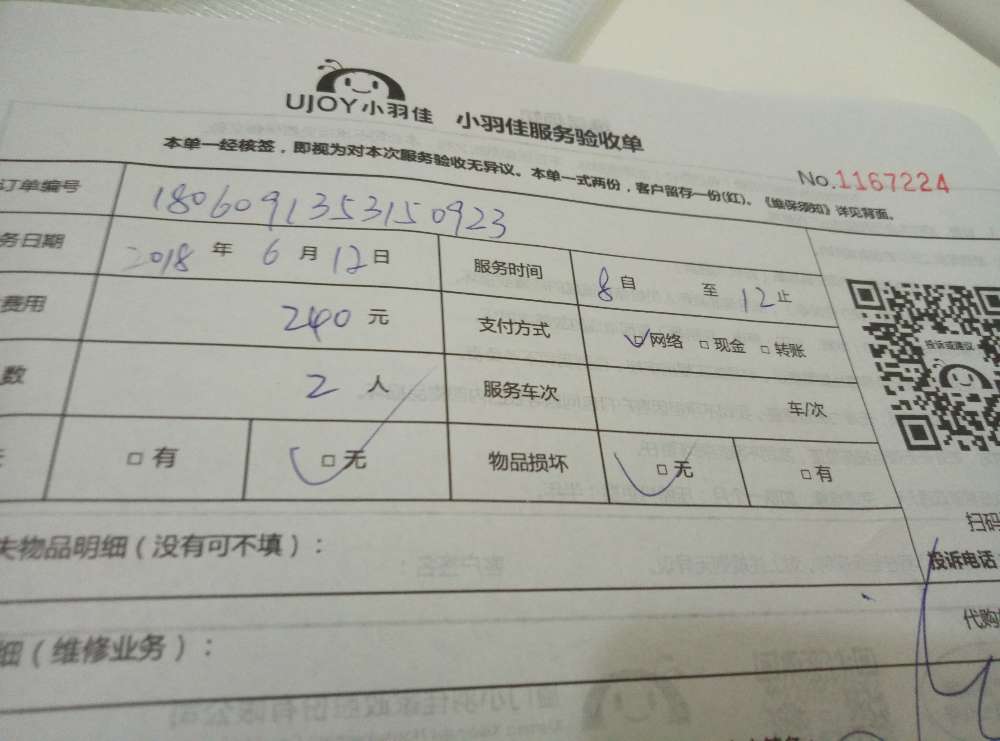 UJOY小羽佳 小羽佳服务验收单
本单一经核签，即视为对本次服务验收无异议。本单一式两份，客户留存一份(红)。《维保须知》详见背面。
No.1167224
订单编号 1806091353150923
务日期 2018 年 6 月 12 日 服务时间 8 自 至 12 止
费用 240 元 支付方式 □网络 □现金 □转账
数 2 人 服务车次 车/次
□有 □无 物品损坏 □无 □有
投诉或建议
扫码
失物品明细（没有可不填）：
投诉电话
代购
细（维修业务）：